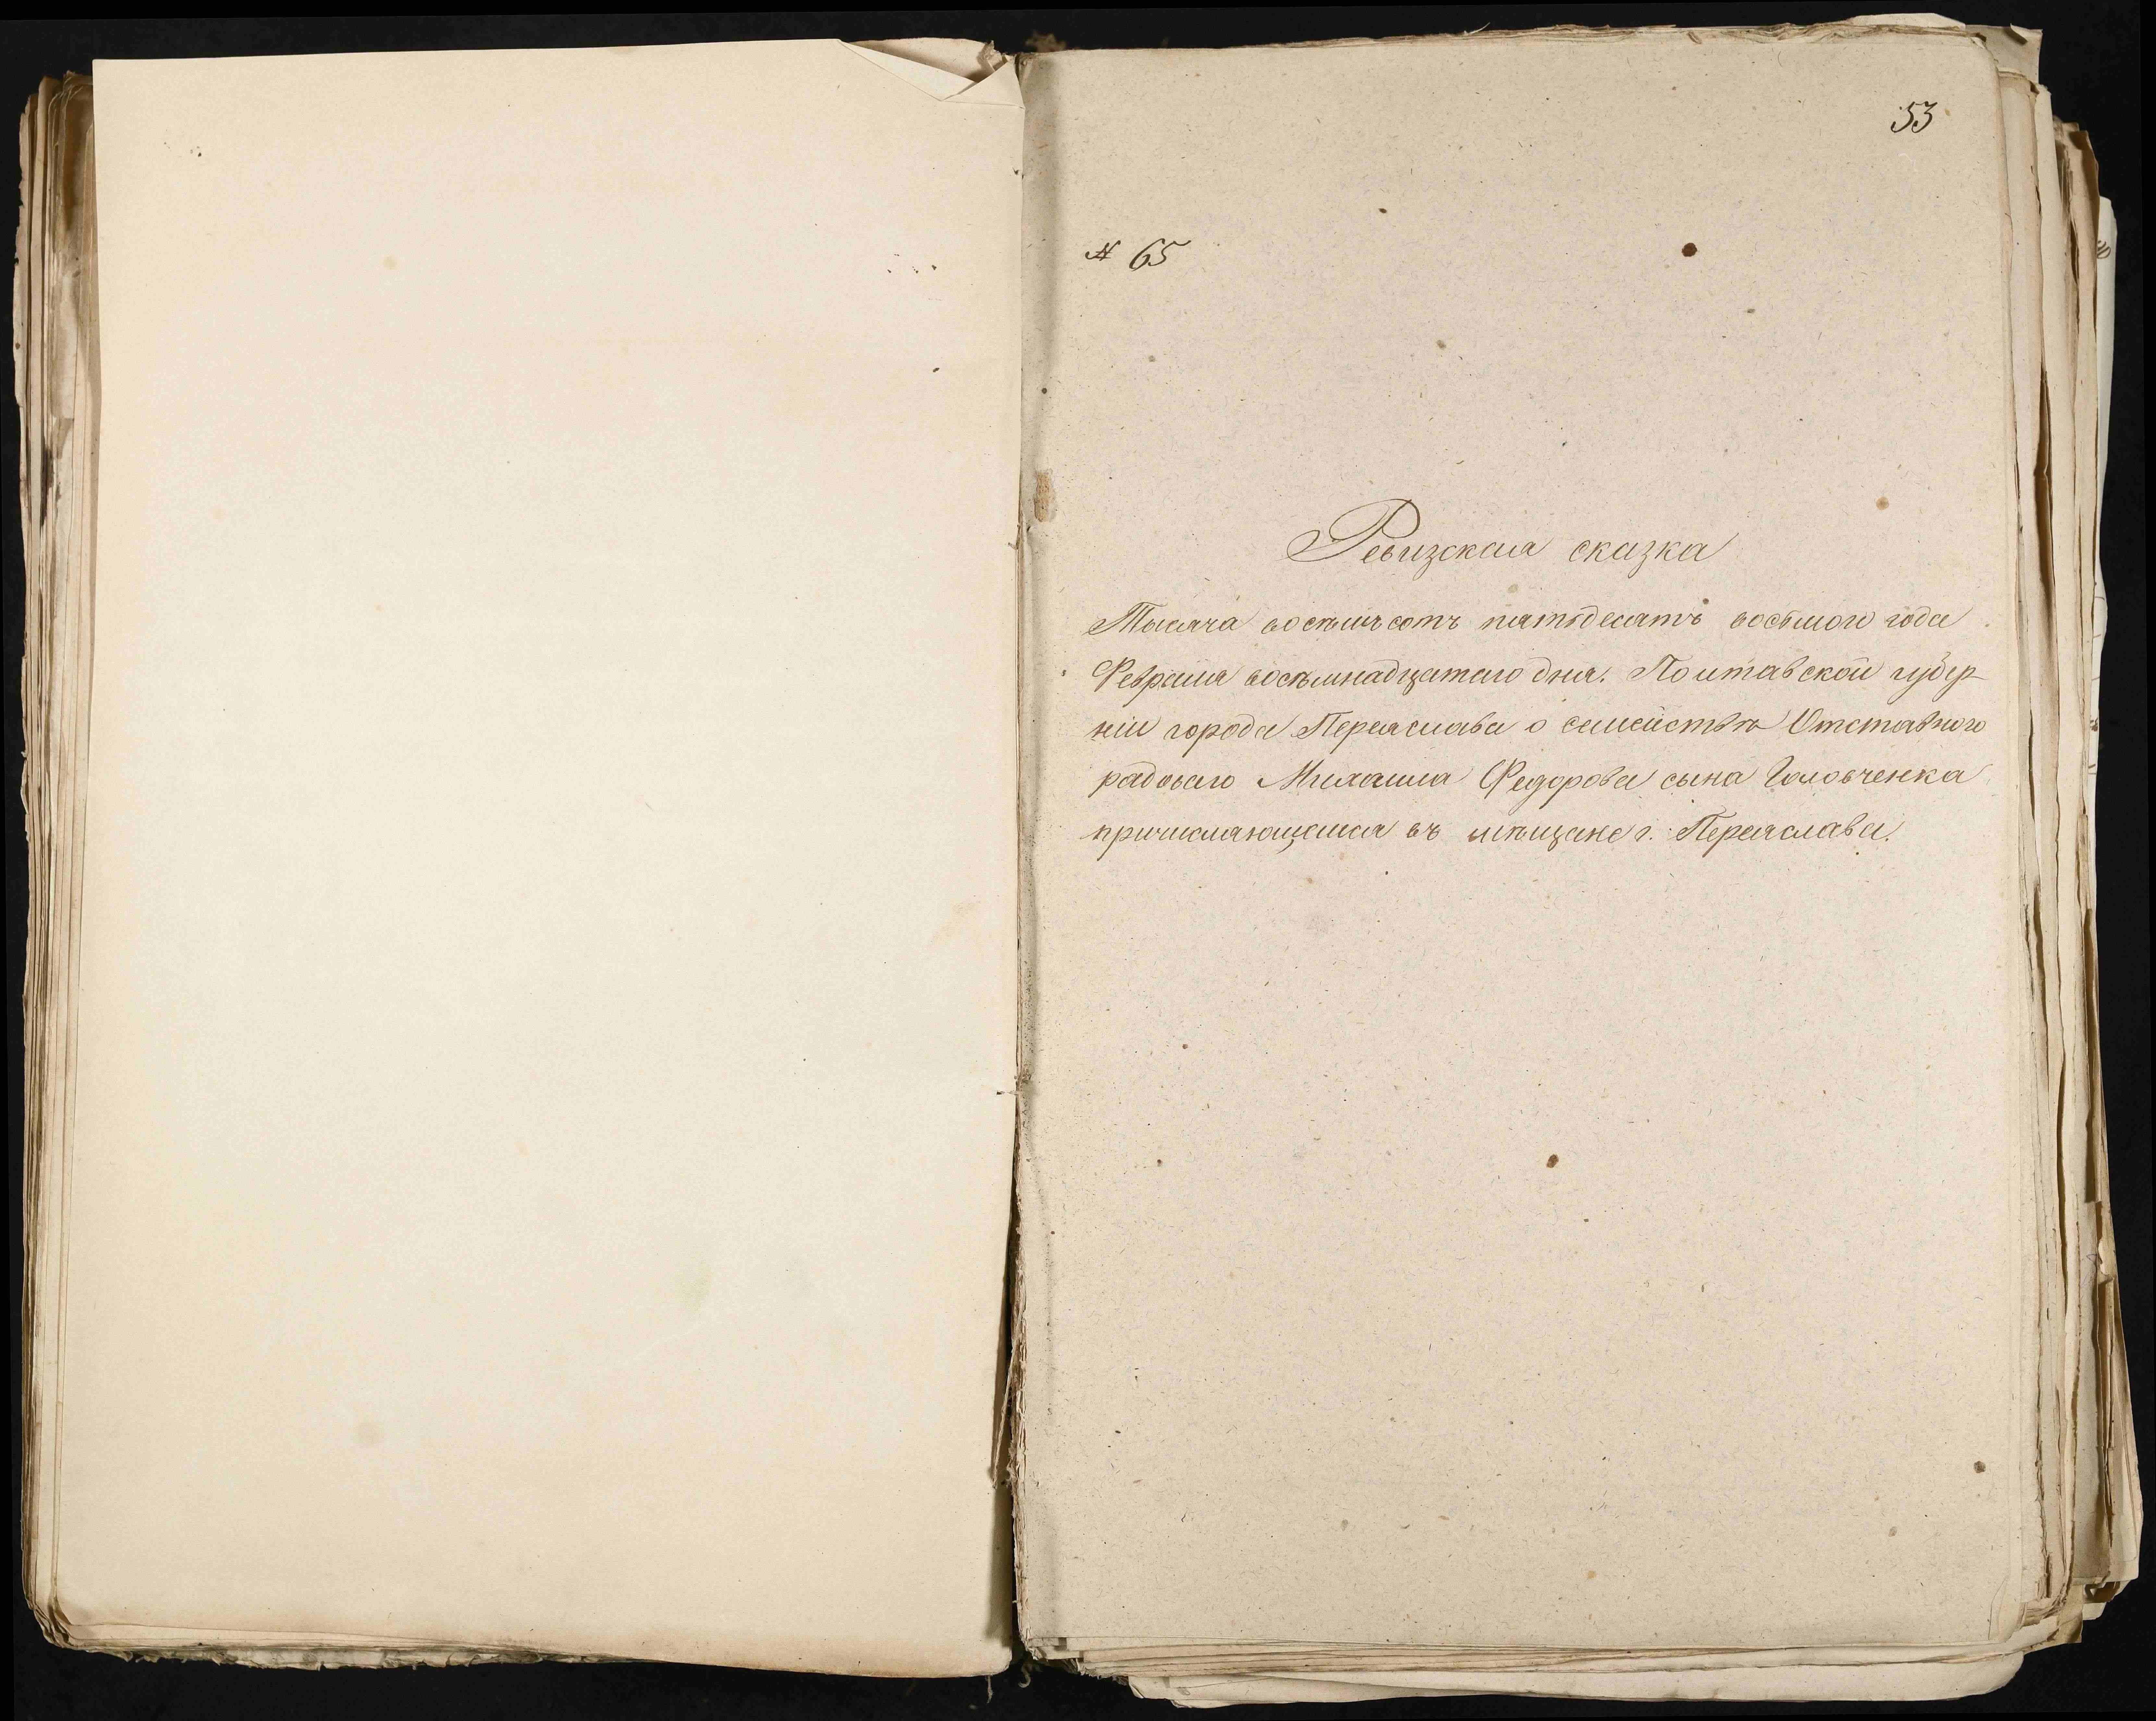 53
№ 65
Ревизская сказка
Тысяча восемьсотъ пятьдесятъ восьмого года
Февраля восемнадцатого дня. Полтавской губер
ніи города Переяслава о семействѣ Отставного
рядового Михаила Федорова сына Головченка
причисляющагося въ мѣщане г. Переяслава.